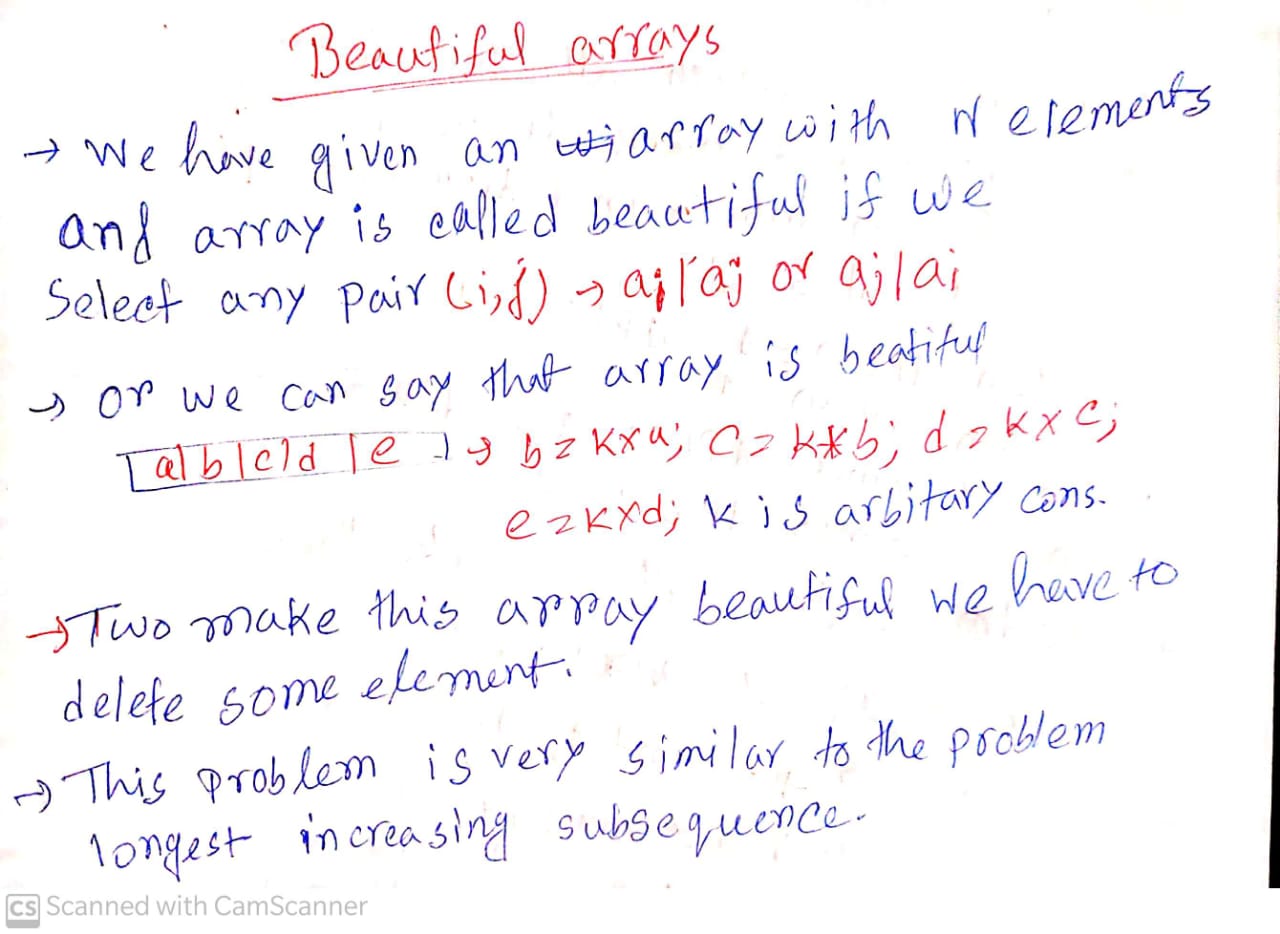 Beautiful arrays
→ We have given an array with N elements
and array is called beautiful if we
Select any pair (i,j) → ai|aj or aj|ai
→ or we can say that array is beatiful
a|b|c|d|e → b=k×a; c=k*b; d=k×c;
e=k×d; k is arbitary cons.
→ Two make this array beautiful we have to
delete some element.
→ This problem is very similar to the problem
longest increasing subsequence.
CS Scanned with CamScanner